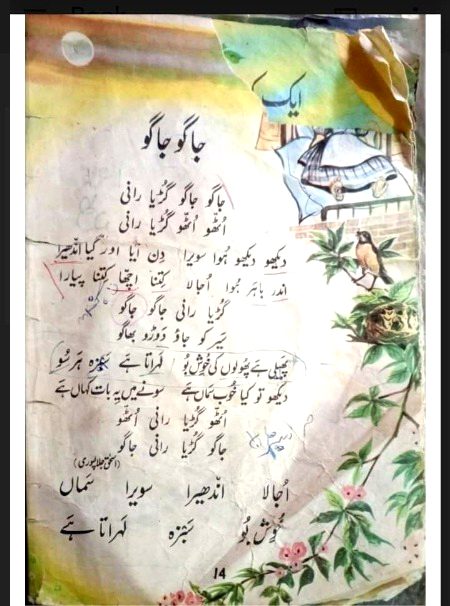 ایک
جاگو جاگو
جاگو جاگو گڑیا رانی
اُٹھو اُٹھو گڑیا رانی
دیکھو دیکھو ہُوا سویرا دِن آیا اور گیا اندھیرا
اندر باہر ہُوا اُجالا کِتنا اچھا کِتنا پیارا
گڑیا رانی جاگو جاگو
سَیر کو جاؤ دوڑو بھاگو
پھیلی ہے پھُولوں کی خُوش بُو لہراتا ہے سَبزہ ہر سُو
دیکھو تو کیا خُوب سَماں ہے سونے میں یہ بات کہاں ہے
اُٹھو گڑیا رانی اُٹھو
جاگو گڑیا رانی جاگو
اُجالا اندھیرا سویرا سَماں
خُوش بُو سَبزہ لَہراتا ہَے
14